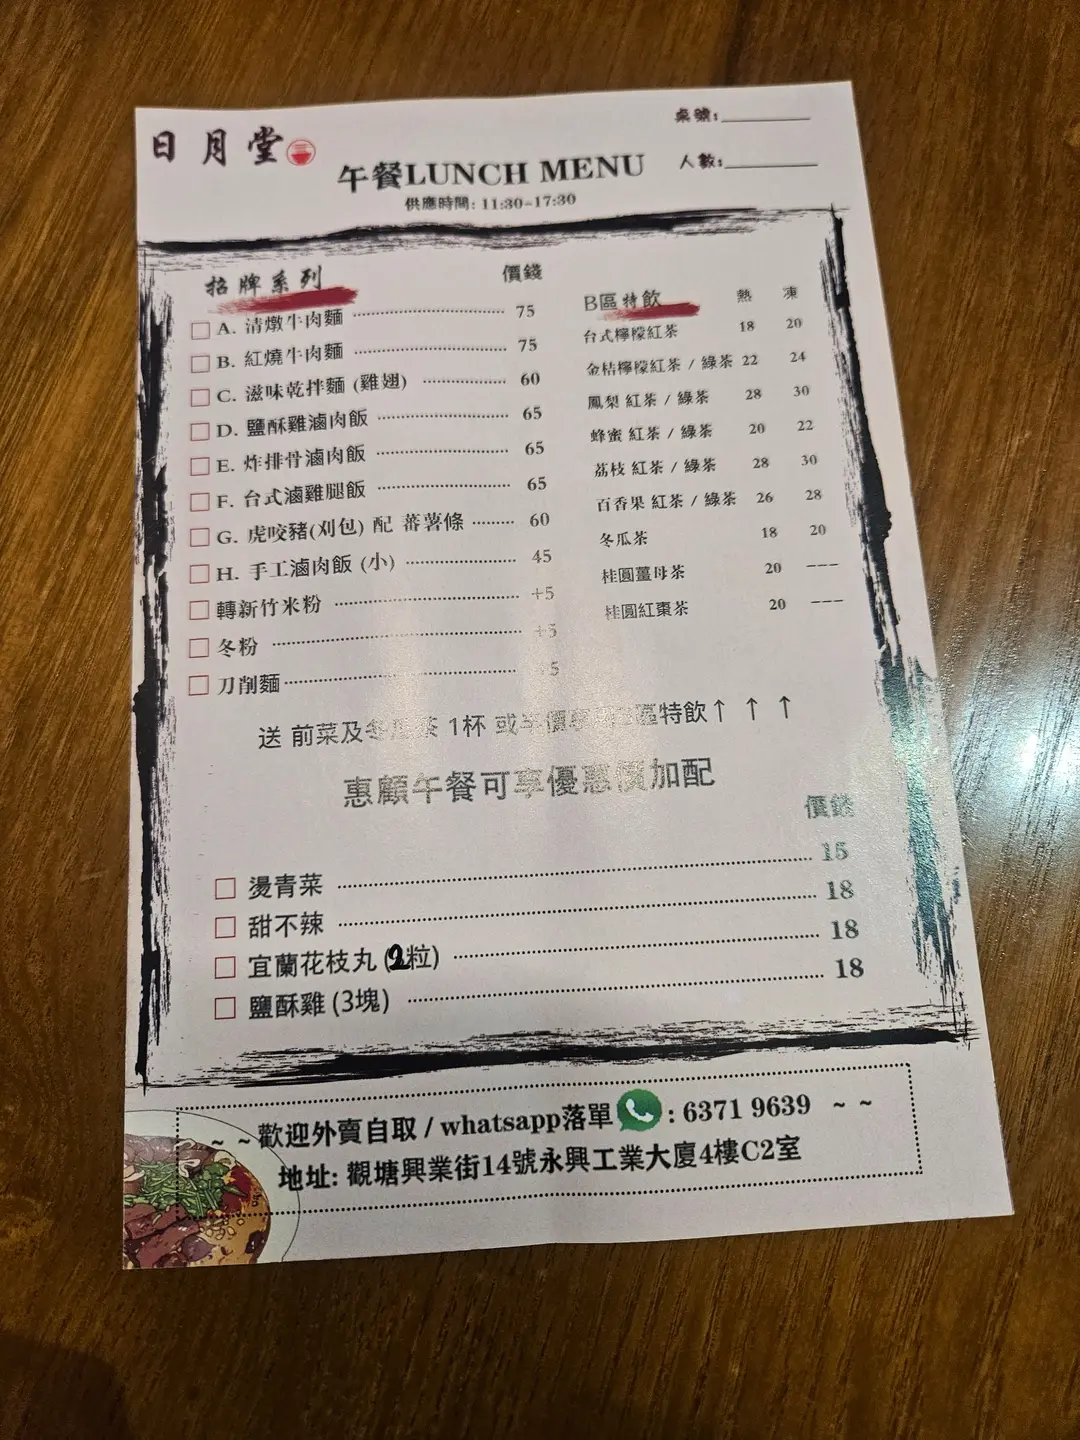 日月堂
桌號:
午餐LUNCH MENU
人數:
供應時間: 11:30-17:30
招牌系列 價錢
A. 清燉牛肉麵 75
B. 紅燒牛肉麵 75
C. 滋味乾拌麵 (雞翅) 60
D. 鹽酥雞滷肉飯 65
E. 炸排骨滷肉飯 65
F. 台式滷雞腿飯 65
G. 虎咬豬(刈包) 配 蕃薯條 60
H. 手工滷肉飯 (小) 45
轉新竹米粉 +5
冬粉 +5
刀削麵 +5
B區特飲 熱 凍
台式檸檬紅茶 18 20
金桔檸檬紅茶 / 綠茶 22 24
鳳梨 紅茶 / 綠茶 28 30
蜂蜜 紅茶 / 綠茶 20 22
荔枝 紅茶 / 綠茶 28 30
百香果 紅茶 / 綠茶 26 28
冬瓜茶 18 20
桂圓薑母茶 20 ---
桂圓紅棗茶 20 ---
送 前菜及冬瓜茶 1杯 或半價 區特飲↑ ↑ ↑
惠顧午餐可享優惠價加配
價錢
燙青菜 15
甜不辣 18
宜蘭花枝丸 (2粒) 18
鹽酥雞 (3塊) 18
~ ~歡迎外賣自取 / whatsapp落單 : 6371 9639 ~ ~
地址: 觀塘興業街14號永興工業大廈4樓C2室